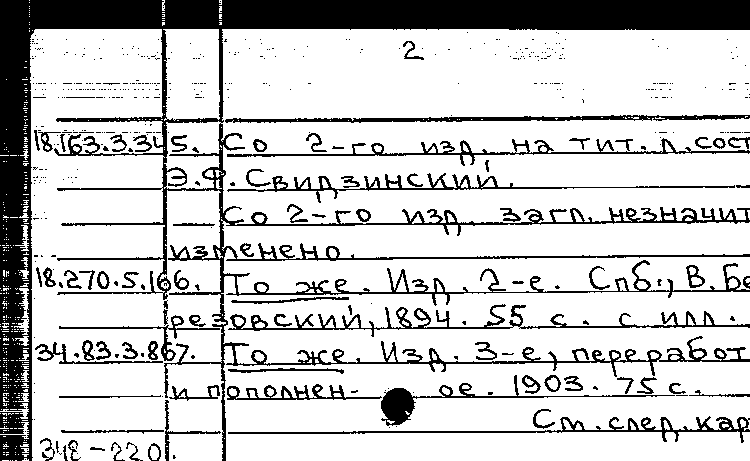 2
18.163.3.345. Со 2-го изд. на тит. л. сост
Э.Ф. Свидзинский.
Со 2-го изд. загл. незначит
изменено.
18.270.5.166. То же. Изд. 2-е. Спб., В. Бе
резовский, 1894. 55 с. с илл.
34.83.3.867. То же. Изд. 3-е, переработ
и пополнен- ое. 1903. 75 с.
См. след. кар
348-220.